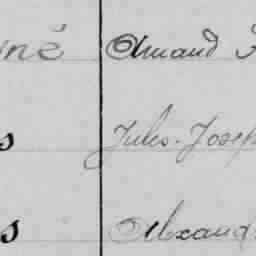 né Amand
s Jules-Joseph
s Alexand